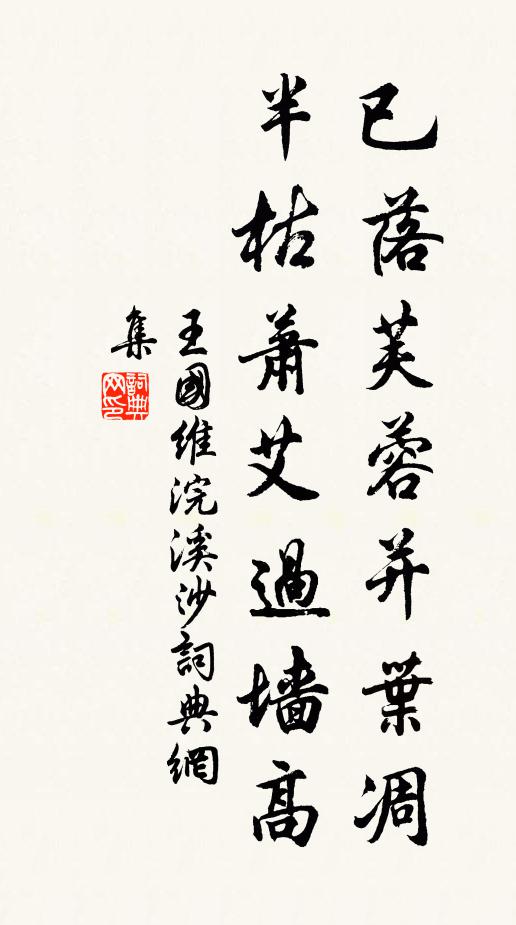 已落芙蓉并葉凋
半枯蕭艾過墻高
王國維浣溪沙詞典網
集
詞典
网印